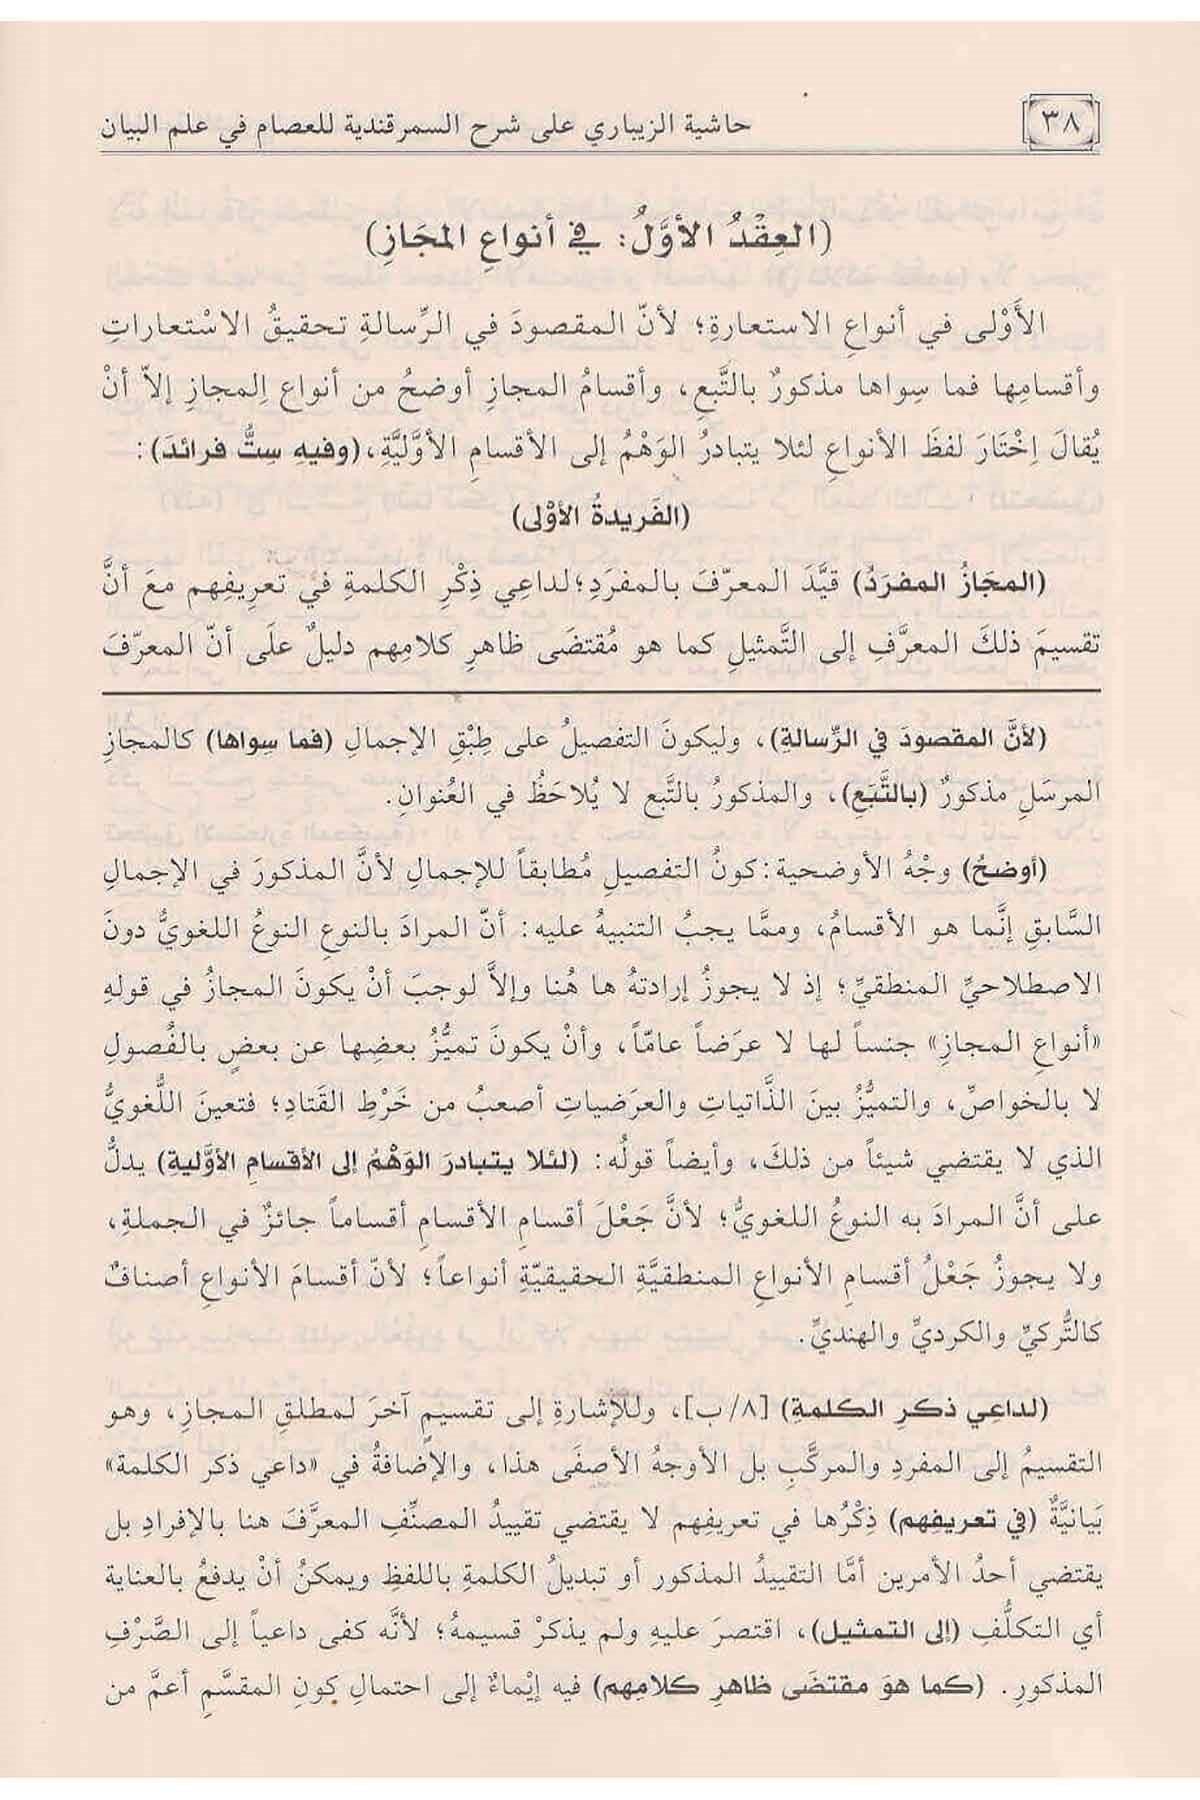 ٣٨
حاشية الزيباري على شرح السمرقندية للعصام في علم البيان
(العِقْدُ الأوَّلُ: في أنواعِ المجَازِ)
الأَوْلى في أنواعِ الاستعارةِ؛ لأنّ المقصودَ في الرِّسالةِ تحقيقُ الاسْتعاراتِ
وأقسامِها فما سِواها مذكورٌ بالتَّبعِ، وأقسامُ المجازِ أوضحُ من أنواع المجازِ إلاّ أنْ
يُقالَ اِخْتَارَ لفظَ الأنواعِ لئلا يتبادرُ الوَهْمُ إلى الأقسامِ الأوَّليَّةِ، (وفيهِ سِتُّ فرائدَ):
(الفَريدةُ الأوْلى)
(المجَازُ المفرَدُ) قيَّدَ المعرّفَ بالمفردِ؛ لداعِي ذِكْرِ الكلمةِ في تعريفِهم معَ أنَّ
تقسيمَ ذلكَ المعرَّفِ إلى التَّمثيلِ كما هو مُقتضَى ظاهرِ كلامِهم دليلٌ علَى أنّ المعرّفَ
(لأنَّ المقصودَ في الرِّسالةِ)، وليكونَ التفصيلُ على طِبْقِ الإجمالِ (فما سِواها) كالمجازِ
المرسَلِ مذكورٌ (بالتَّبَعِ)، والمذكورُ بالتَّبع لا يُلاحَظُ في العُنوانِ.
(أوضحُ) وجْهُ الأوضحية: كونُ التفصيلِ مُطابقاً للإجمالِ لأنَّ المذكورَ في الإجمالِ
السَّابقِ إنَّما هو الأقسامُ، وممَّا يجبُ التنبيهُ عليه: أنّ المرادَ بالنوعِ النوعُ اللغويُّ دونَ
الاصطلاحيِّ المنطقيِّ؛ إذ لا يجوزُ إرادتهُ ها هُنا وإلاَّ لوجبَ أنْ يكونَ المجازُ في قولهِ
«أنواعِ المجازِ» جنساً لها لا عرَضاً عامّاً، وأنْ يكونَ تميُّزُ بعضِها عن بعضٍ بالفُصولِ
لا بالخواصِّ، والتميُّزُ بينَ الذَّاتياتِ والعرَضياتِ أصعبُ من خَرْطِ القَتادِ؛ فتعينَ اللُّغويُّ
الذي لا يقتضي شيئاً من ذلكَ، وأيضاً قولُه: (لئلا يتبادرَ الوَهْمُ إلى الأقسامِ الأوَّليةِ) يدلُّ
على أنَّ المرادَ به النوعُ اللغويُّ؛ لأنَّ جَعْلَ أقسامِ الأقسامِ أقساماً جائزٌ في الجملةِ،
ولا يجوزُ جَعْلُ أقسامِ الأنواعِ المنطقيَّةِ الحقيقيّةِ أنواعاً؛ لأنّ أقسامَ الأنواعِ أصنافٌ
كالتُّركيِّ والكرديِّ والهنديِّ.
(لداعِي ذكرِ الكلمةِ) [٨/ب]، وللإشارةِ إلى تقسيمٍ آخرَ لمطلقِ المجازِ، وهو
التقسيمُ إلى المفردِ والمركَّبِ بل الأوجهُ الأصفَى هذا، والإضافةُ في «داعي ذكر الكلمة»
بَيانيَّةٌ (في تعريفِهم) ذِكْرُها في تعريفِهم لا يقتضي تقييدُ المصنِّفِ المعرَّفَ هنا بالإفرادِ بل
يقتضي أحدُ الأمرين أمَّا التقييدُ المذكور أو تبديلُ الكلمةِ باللفظِ ويمكنُ أنْ يدفعُ بالعناية
أي التكلُّفِ (إلى التمثيل)، اقتصرَ عليهِ ولم يذكرْ قسيمهُ؛ لأنَّه كفى داعياً إلى الصَّرْفِ
المذكورِ. (كما هوَ مقتضَى ظاهرِ كلامِهم) فيه إيْماءٌ إلى احتمالِ كونِ المقسَّمِ أعمَّ من